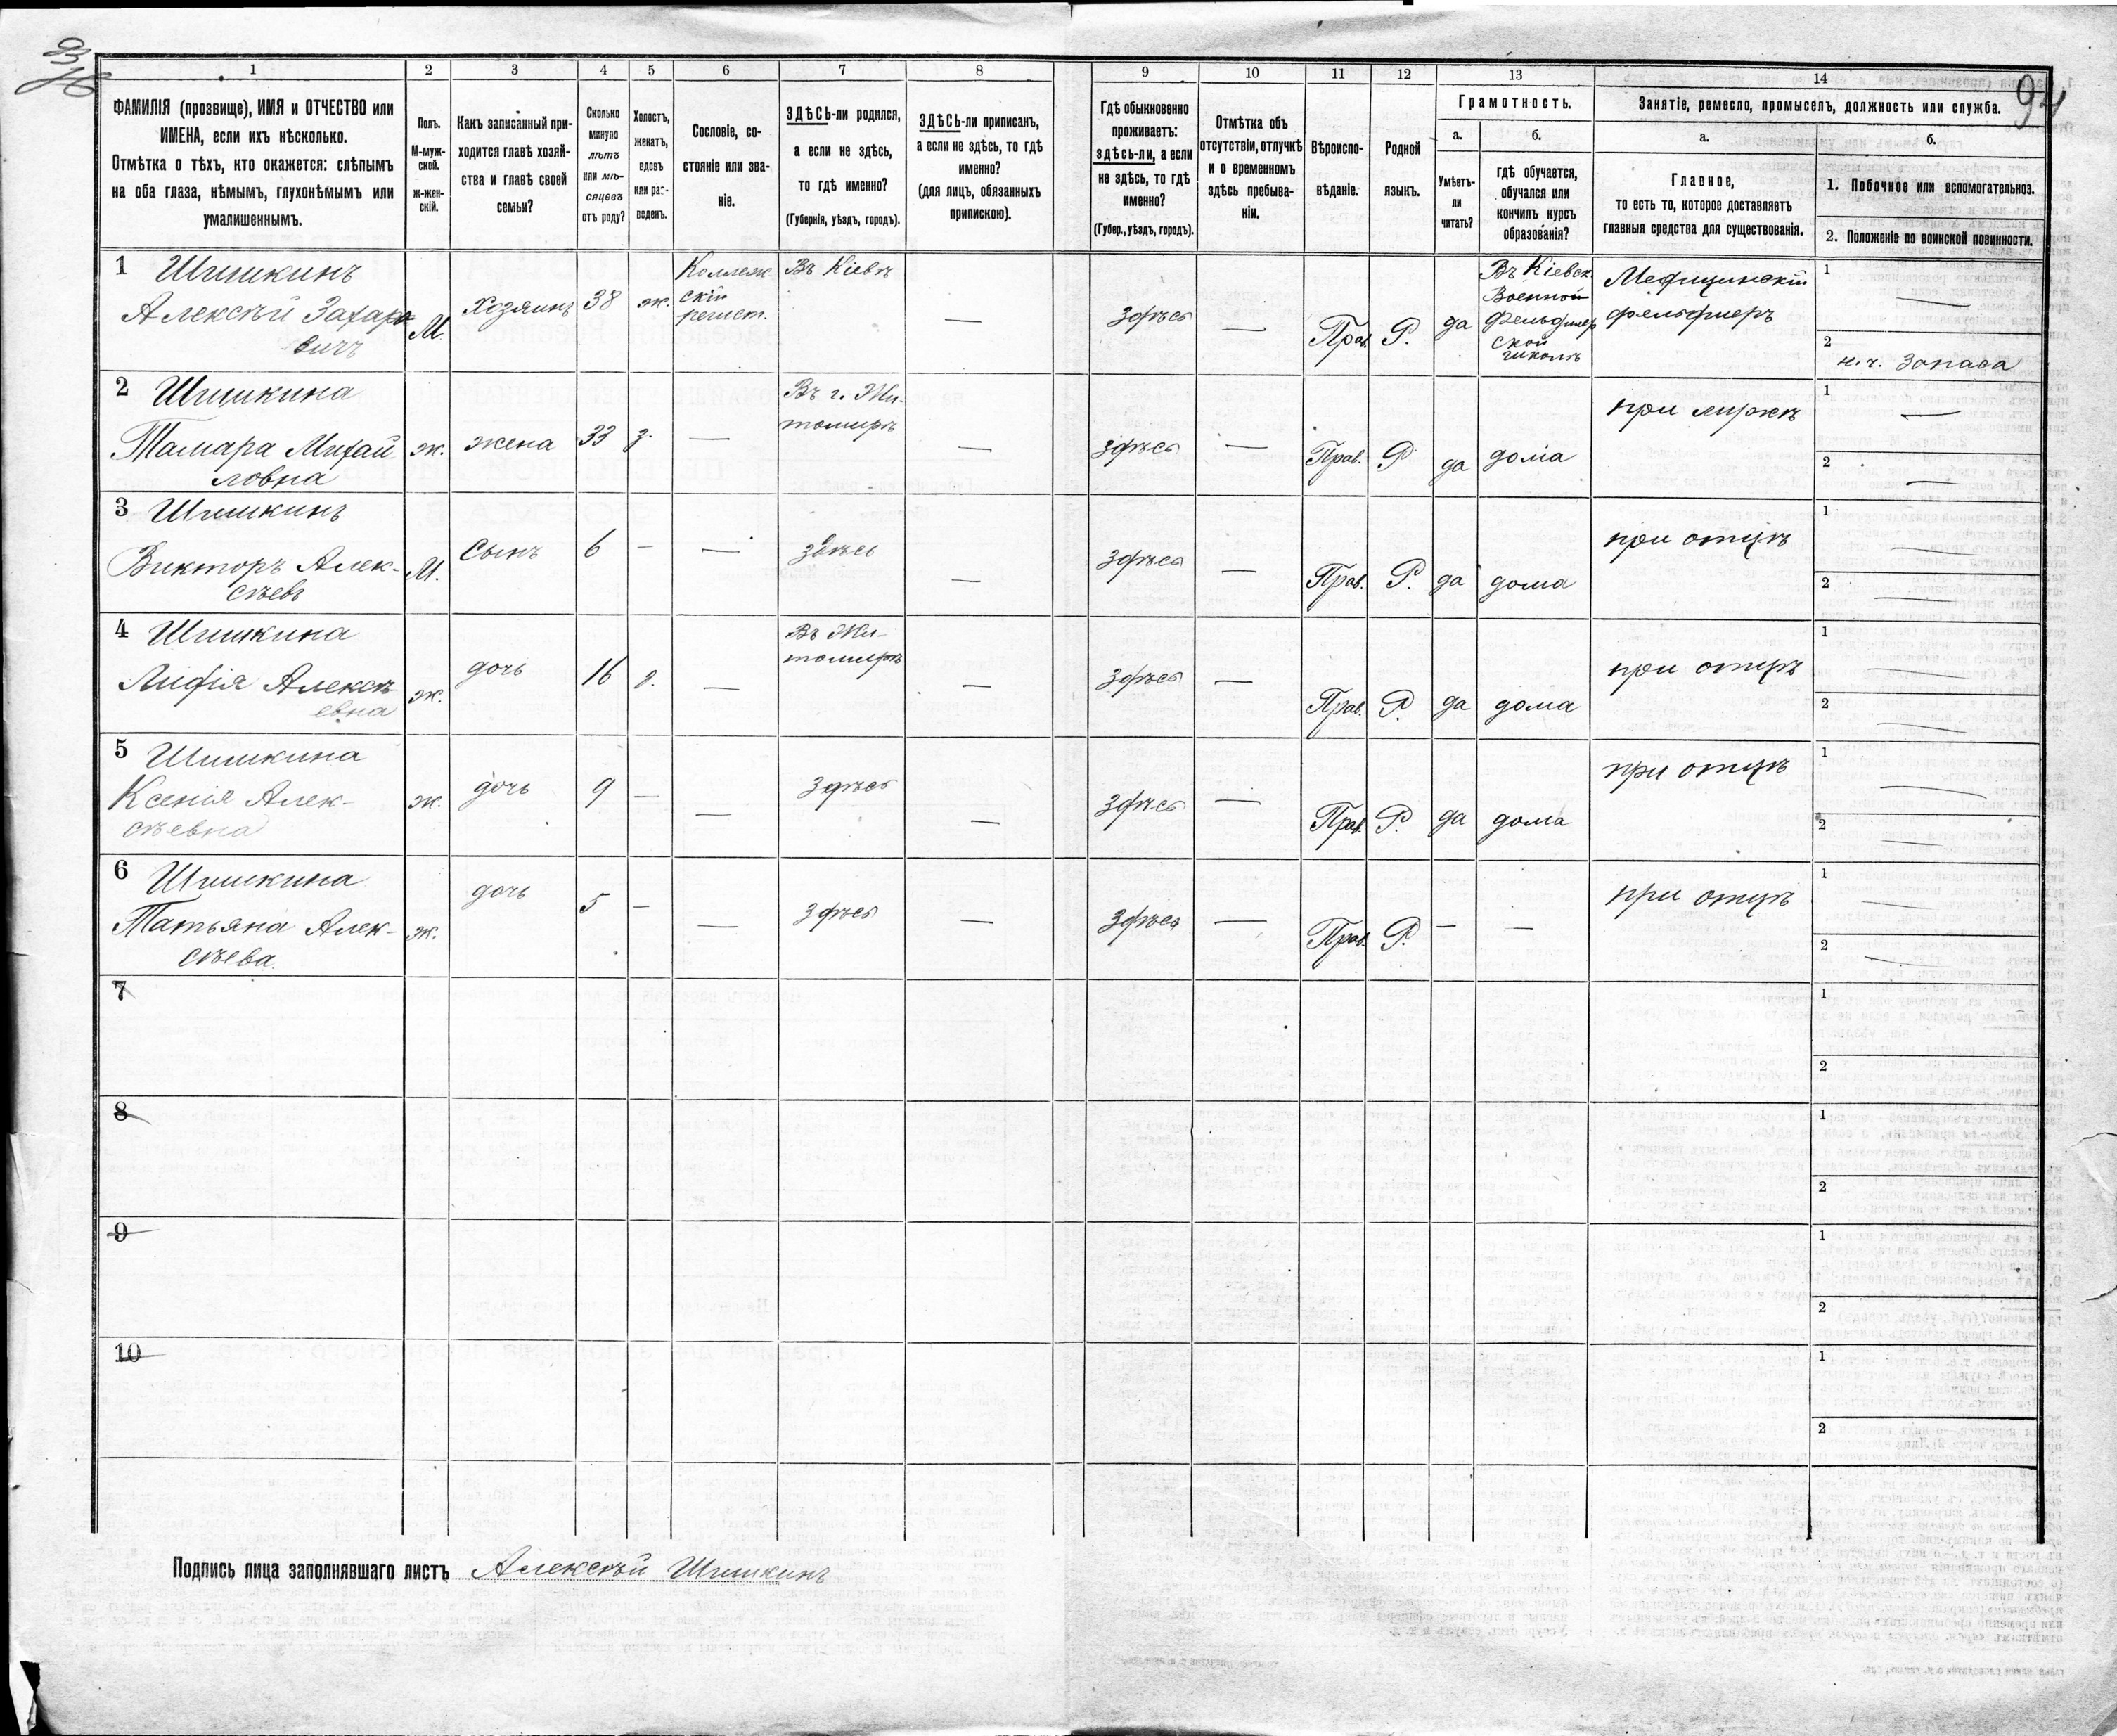 94
1
2
3
4
5
6
7
8
9
10
11
12
13
14
ФАМИЛІЯ (прозвище), ИМЯ и ОТЧЕСТВО или
ИМЕНА, если ихъ нѣсколько.
Отмѣтка о тѣхъ, кто окажется: слѣпымъ
на оба глаза, нѣмымъ, глухонѣмымъ или
умалишеннымъ.
Полъ.
М-муж-
ской.
ж-жен-
скій.
Какъ записанный при-
ходится главѣ хозяй-
ства и главѣ своей
семьи?
Сколько
минуло
лѣтъ
или мѣ-
сяцевъ
отъ роду?
Холостъ,
женатъ,
вдовъ
или раз-
веденъ.
Сословіе, со-
стояніе или зва-
ніе.
ЗДѢСЬ-ли родился,
а если не здѣсь,
то гдѣ именно?
(Губернія, уѣздъ, городъ).
ЗДѢСЬ-ли приписанъ,
а если не здѣсь, то гдѣ
именно?
(для лицъ, обязанныхъ
припискою).
Гдѣ обыкновенно
проживаетъ:
здѣсь-ли, а если
не здѣсь, то гдѣ
именно?
(Губер., уѣздъ, городъ).
Отмѣтка объ
отсутствіи, отлучкѣ
и о временномъ
здѣсь пребыва-
ніи.
Вѣроиспо-
вѣданіе.
Родной
языкъ.
Грамотность.
а.
б.
Умѣетъ-
ли
читать?
гдѣ обучается,
обучался или
кончилъ курсъ
образованія?
Занятіе, ремесло, промыселъ, должность или служба.
а.
б.
Главное,
то есть то, которое доставляетъ
главныя средства для существованія.
1. Побочное или вспомогательное.
2. Положеніе по воинской повинности.
1 Шишкинъ
Алексѣй Захарь
евичъ
М.
Хозяинъ
38
ж.
Коллеж.
скій
регист.
Въ Кіевѣ
—
здѣсь
—
Прав.
Р.
да
Въ Кіевск.
Военной
Фельдшер
ской
школѣ
Медицинскій
фельдшеръ
1
—
2
н.ч. Запаса
2 Шишкина
Тамара Михай-
ловна
ж.
жена
33
з.
—
Въ г. Жи-
томирѣ
—
здѣсь
—
Прав.
Р.
да
дома
при мужѣ
1
—
2
—
3 Шишкинъ
Викторъ Алек-
сѣевъ
М.
Сынъ
6
—
—
здѣсь
—
здѣсь
—
Прав.
Р.
да
дома
при отцѣ
1
—
2
—
4 Шишкина
Лидія Алексѣ-
евна
ж.
дочь
16
—
Въ Жи-
томирѣ
—
здѣсь
—
Прав.
Р.
да
дома
при отцѣ
1
—
2
—
5 Шишкина
Ксенія Алек-
сѣевна
ж.
дочь
9
—
—
здѣсь
—
здѣсь
—
Прав.
Р.
да
дома
при отцѣ
1
—
2
—
6 Шишкина
Татьяна Алек-
сѣева
ж.
дочь
5
—
—
здѣсь
—
здѣсь
—
Прав.
Р.
—
—
при отцѣ
1
—
2
—
7
1
2
8
1
2
9
1
2
10
1
2
Подпись лица заполнявшаго листъ Алексѣй Шишкинъ